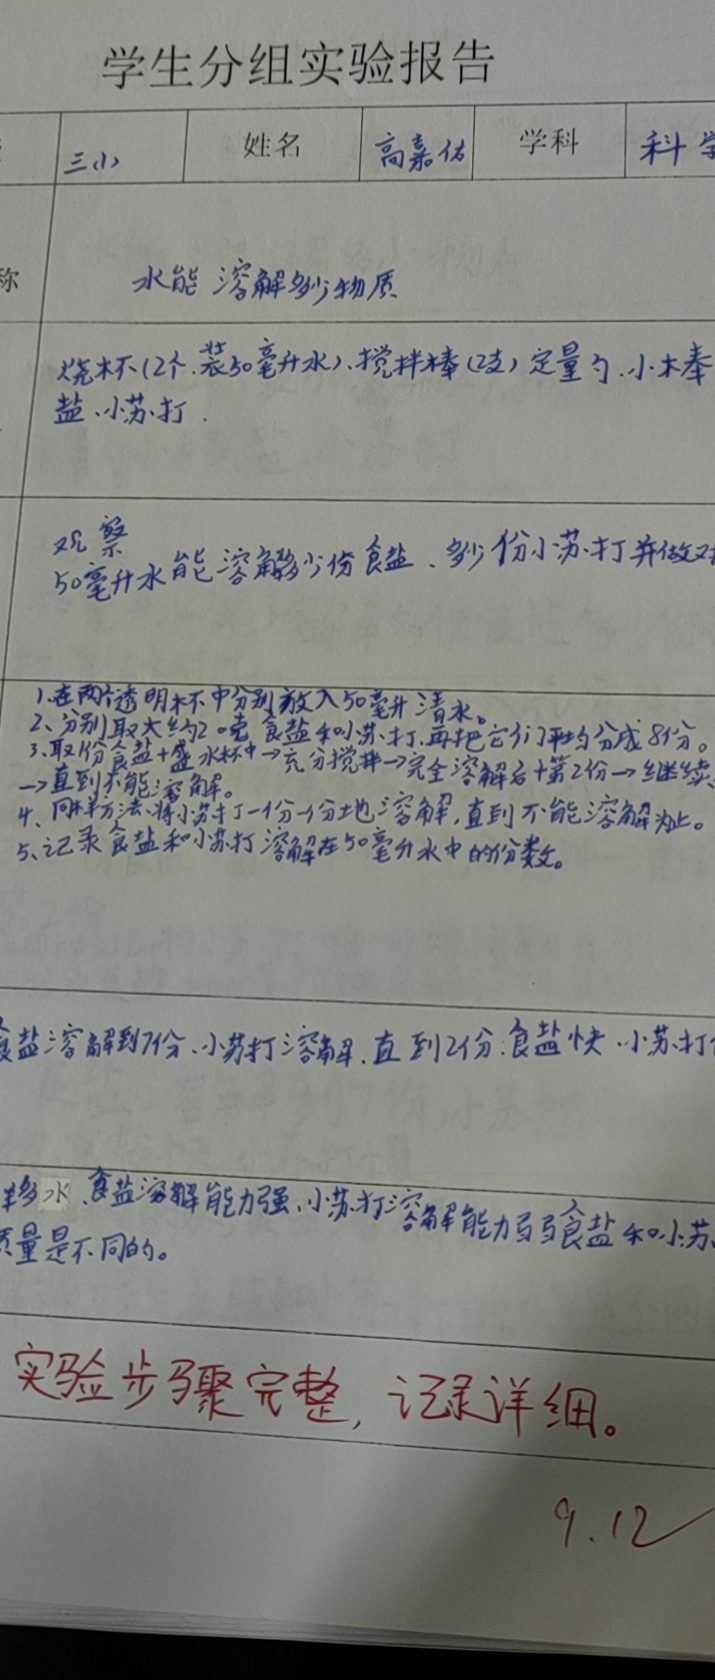 学生分组实验报告
三(1) 姓名 高嘉佑 学科 科学
称 水能溶解多少物质
烧杯(2个.装50毫升水)、搅拌棒(2支)定量勺.小木奉
盐、小苏打.
观察
50毫升水能溶解多少份食盐、多少份小苏打并做对
1.在两个透明杯中分别放入50毫升清水。
2、分别取大约20克食盐和小苏打,再把它们平均分成8份。
3、取1份食盐+盛水杯中→充分搅拌→完全溶解后+第2份→继续
→直到不能溶解。
4、同样方法、将小苏打一份一份地溶解,直到不能溶解为止。
5、记录食盐和小苏打溶解在50毫升水中的份数。
食盐溶解到7份、小苏打溶解.直到2份.食盐快.小苏打
水、食盐溶解能力强、小苏打溶解能力弱食盐和小苏
质量是不同的。
实验步骤完整,记录详细。
9.12